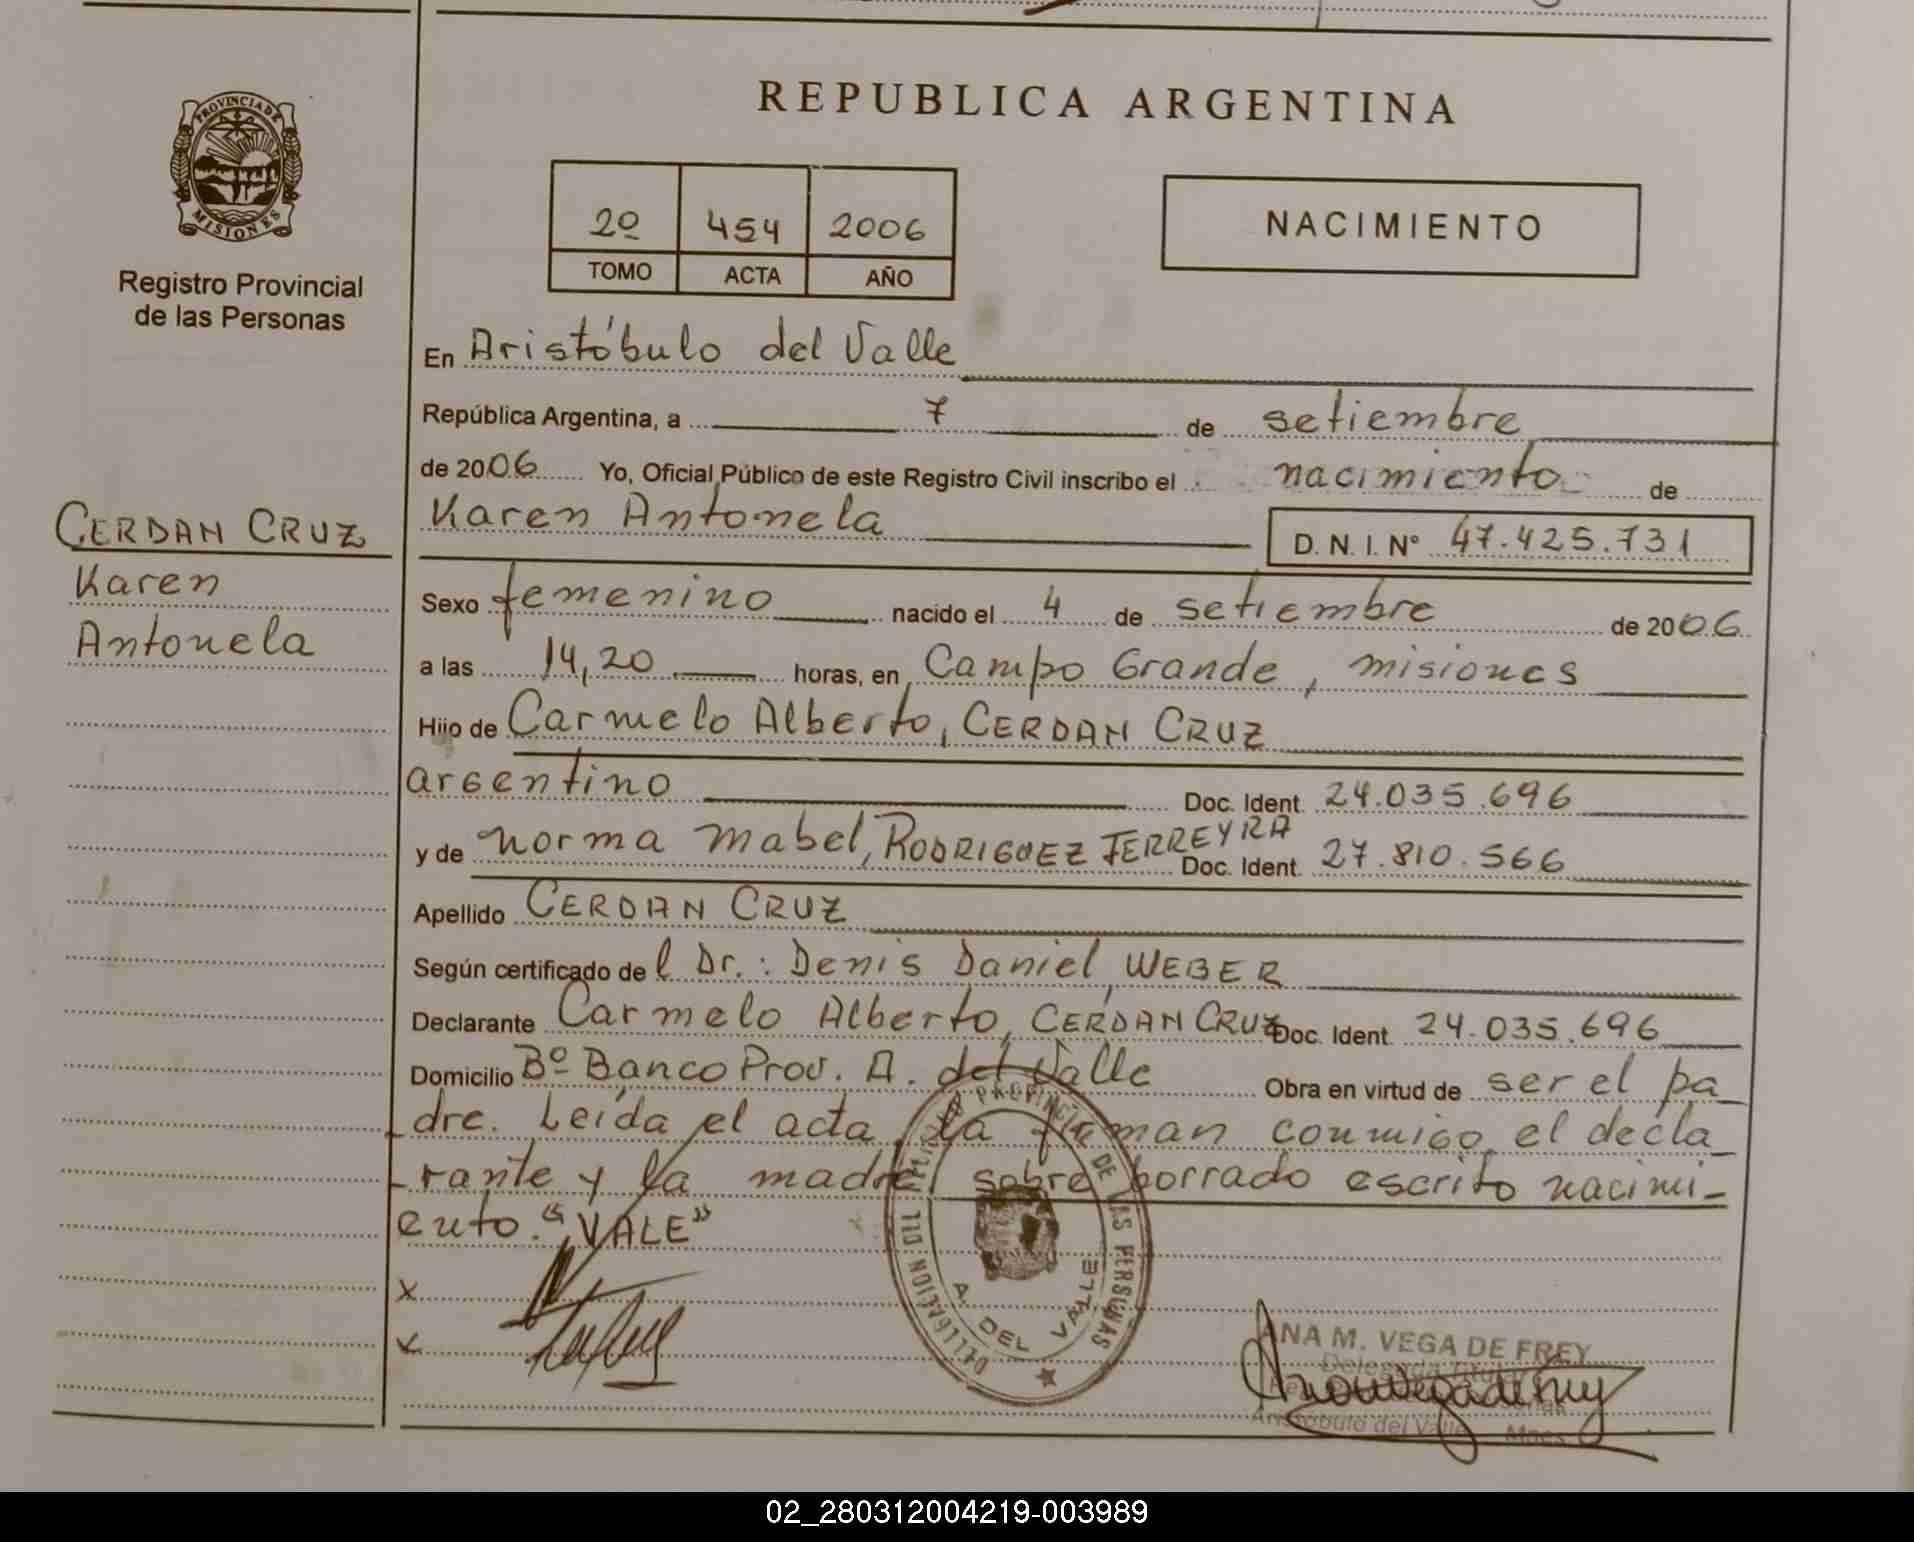 REPUBLICA ARGENTINA
PROVINCIA DE
MISIONES
Registro Provincial
de las Personas
2º 454 2006
TOMO ACTA AÑO
NACIMIENTO
En Aristóbulo del Valle
República Argentina, a 7 de setiembre
de 2006 Yo, Oficial Público de este Registro Civil inscribo el nacimiento de
CERDAN CRUZ
Karen
Antonela
Karen Antonela
D. N. I. Nº 47.425.731
Sexo femenino nacido el 4 de setiembre de 2006
a las 14,20 horas, en Campo Grande, misiones
Hijo de Carmelo Alberto, CERDAN CRUZ
argentino Doc. Ident. 24.035.696
y de norma mabel, RODRIGUEZ FERREYRA Doc. Ident. 27.810.566
Apellido CERDAN CRUZ
Según certificado de l Dr.: Denis Daniel WEBER
Declarante Carmelo Alberto, CERDAN CRUZ Doc. Ident. 24.035.696
Domicilio Bº Banco Prov. A. del Valle Obra en virtud de ser el pa_
_dre. Leída el acta, la firman conmigo el decla_
_rante y la madre, sobre borrado escrito nacimi_
ento. "VALE"
x
x
DELEGACION DEL REGISTRO PROVINCIAL DE LAS PERSONAS
A. DEL VALLE
ANA M. VEGA DE FREY
Delegada Titular
Aristóbulo del Valle Mnes
02_280312004219-003989